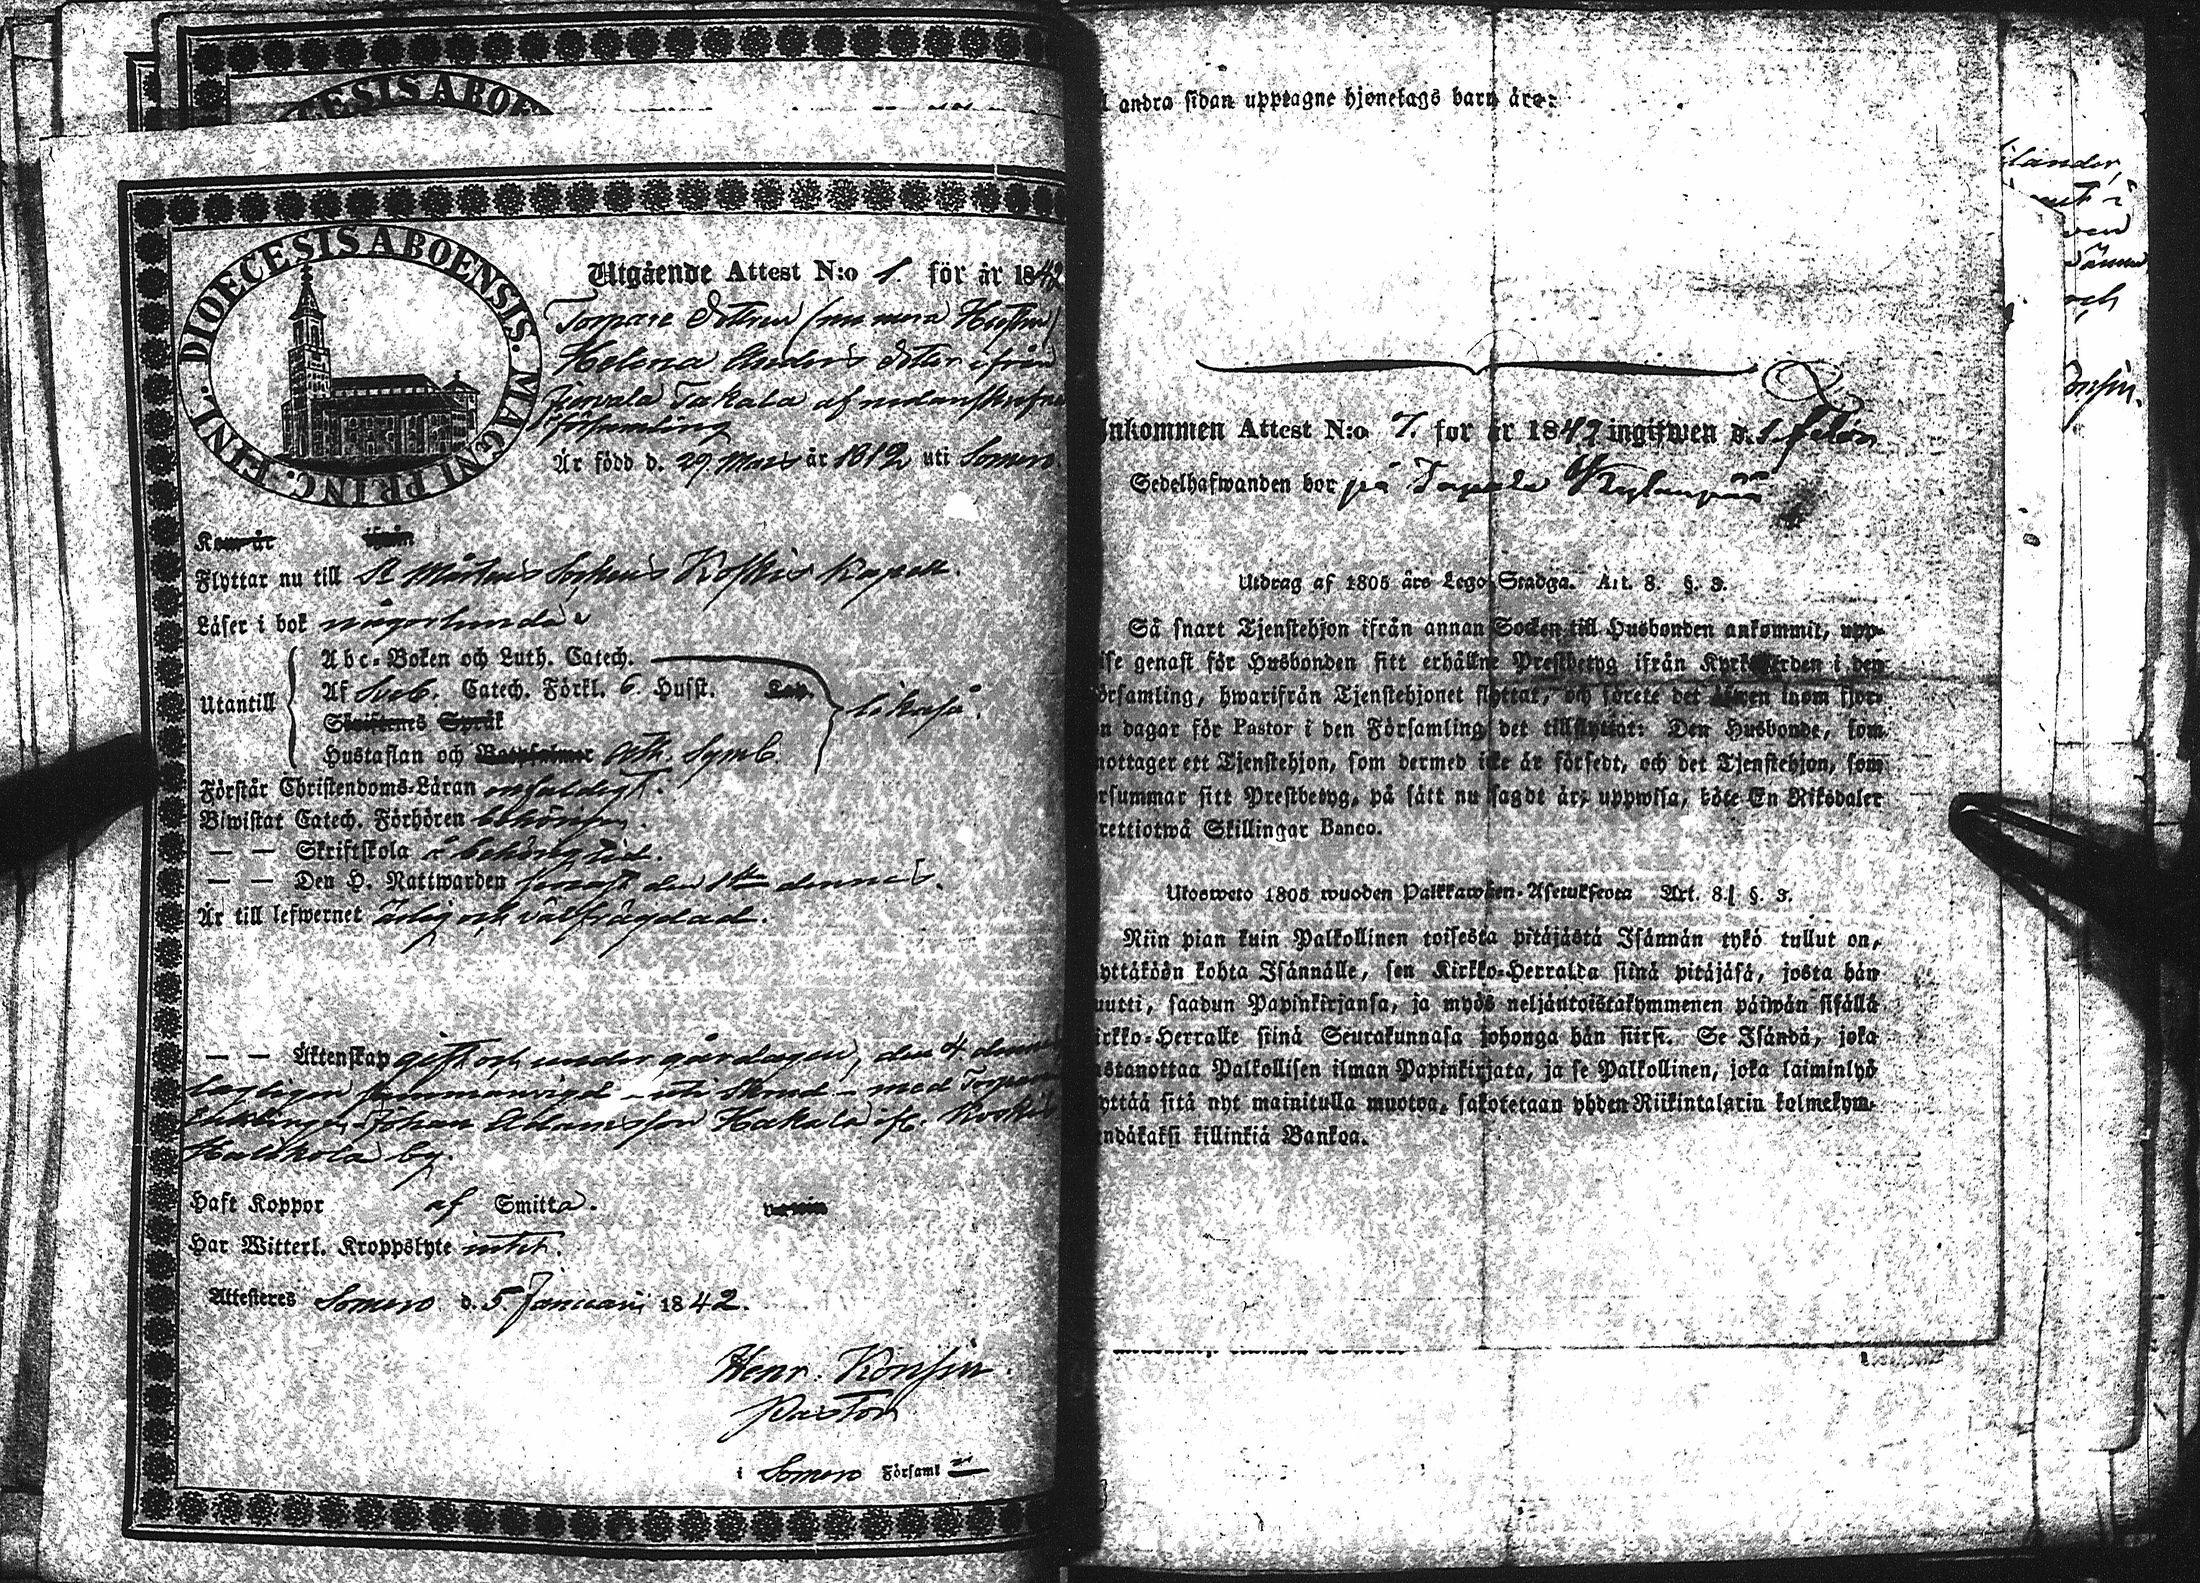 CESIS ABOEN
DIOECESIS ABOENSIS. MAGNI PRINC. FINL.
Utgående Attest N:o 1. för år 1842
Torpare Dottren (nu mera Hustru)
Helena Anders Doter ifrån
Takala af nedanskrifne
församling
År född d. 29 Mars år 1812 uti Somero.
Flyttar nu till St Mårtens Sockens Koskis Kapell.
Läser i bok någorlunda
Utantill
Abc-Boken och Luth. Catech.
Af Sveb. Catech. Förkl. 6. Husst. Lop.
Skriftenes Språk
Hustaflan och Ath. Symb.
likaså.
Förstår Christendoms-Läran enfaldigt.
Biwistat Catech. Förhören behörigen.
— — Skriftskola å behörig tid.
— — Den H. Nattwarden senast den 1ste dennes.
Är till lefwernet ärlig och välfrägdad.
— — Äktenskap gift och under gårdagen, den 4 dennes
lagligen sammanvigd – uti Stånd – med Torpare
Johan Adamsson Hakala ifr. Koskis
Halikola by.
Haft Koppor af Smitta.
Har Witterl. Kroppslyte intet.
Attesteres Somero d. 5 Januari 1842.
Henr. Konsin.
Pastor
i Somero Församl
andra sidan upptagne hjonelags barn äro:
Inkommen Attest N:o 7. för år 1842 ingifwen d. 1
Sedelhafwanden bor på
Utdrag af 1805 års Lego-Stadga. Art. 8. §. 3.
Så snart Tjenstehjon ifrån annan Socken till Husbonden ankommit, upp-
ise genast för Husbonden sitt erhållne Prestbetyg ifrån Kyrkoherden i den
örsamling, hwarifrån Tjenstehjonet flyttat, och förete det äfwen inom fjor-
n dagar för Pastor i den Församling det tillflyttat: Den Husbonde, som
mottager ett Tjenstehjon, som dermed icke är försedt, och det Tjenstehjon, som
rsummar sitt Prestbetyg, på sätt nu sagdt är, uppwisa, böte En Riksdaler
rettiotwå Skillingar Banco.
Ulosweto 1805 wuoden Palkkawäen-Asetuksesta Art. 8. §. 3.
Niin pian kuin Palkollinen toisesta pitäjästä Isännän tykö tullut on,
yttäköön kohta Isännälle, sen Kirkko-Herralta siinä pitäjäsä, josta hän
uutti, saadun Papinkirjansa, ja myös neljäntoistakymmenen päiwän sisällä
irkko-Herralle siinä Seurakunnasa johonga hän siirsi. Se Isändä, joka
astanottaa Palkollisen ilman Papinkirjata, ja se Palkollinen, joka laiminlyö
yttää sitä nyt mainitulla muotoa, sakotetaan yhden Riikintalarin kolmekym-
endäkaksi killinkiä Bankoa.
länder,
och
onsin.